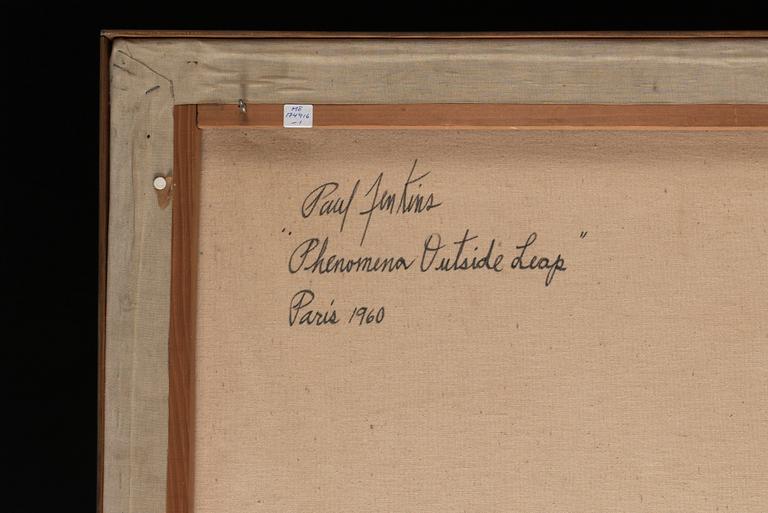 ME
174916
-1
Paul Jenkins
"Phenomena Outside Leap"
Paris 1960